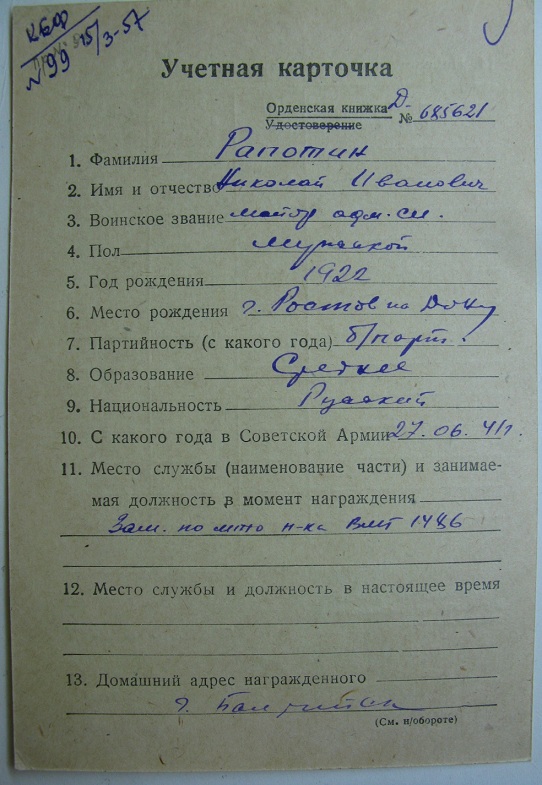 КБФ
№99 15/3-57
Учетная карточка
Орденская книжка Д-
Удостоверение № 685621
1. Фамилия Рапотин
2. Имя и отчество Николай Иванович
3. Воинское звание майор адм. сл.
4. Пол Мужской
5. Год рождения 1922
6. Место рождения г. Ростов на Дону
7. Партийность (с какого года) б/парт.
8. Образование Среднее
9. Национальность Русский
10. С какого года в Советской Армии 27.06.41г.
11. Место службы (наименование части) и занимае-
мая должность в момент награждения
Зам. по мто н-ка ВМГ 1486
12. Место службы и должность в настоящее время
13. Домашний адрес награжденного
г. Балтийск
(См. н/обороте)